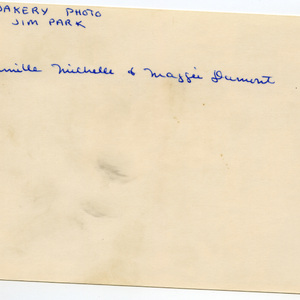 BAKERY PHOTO
JIM PARK
Michelle & Maggie Dumont